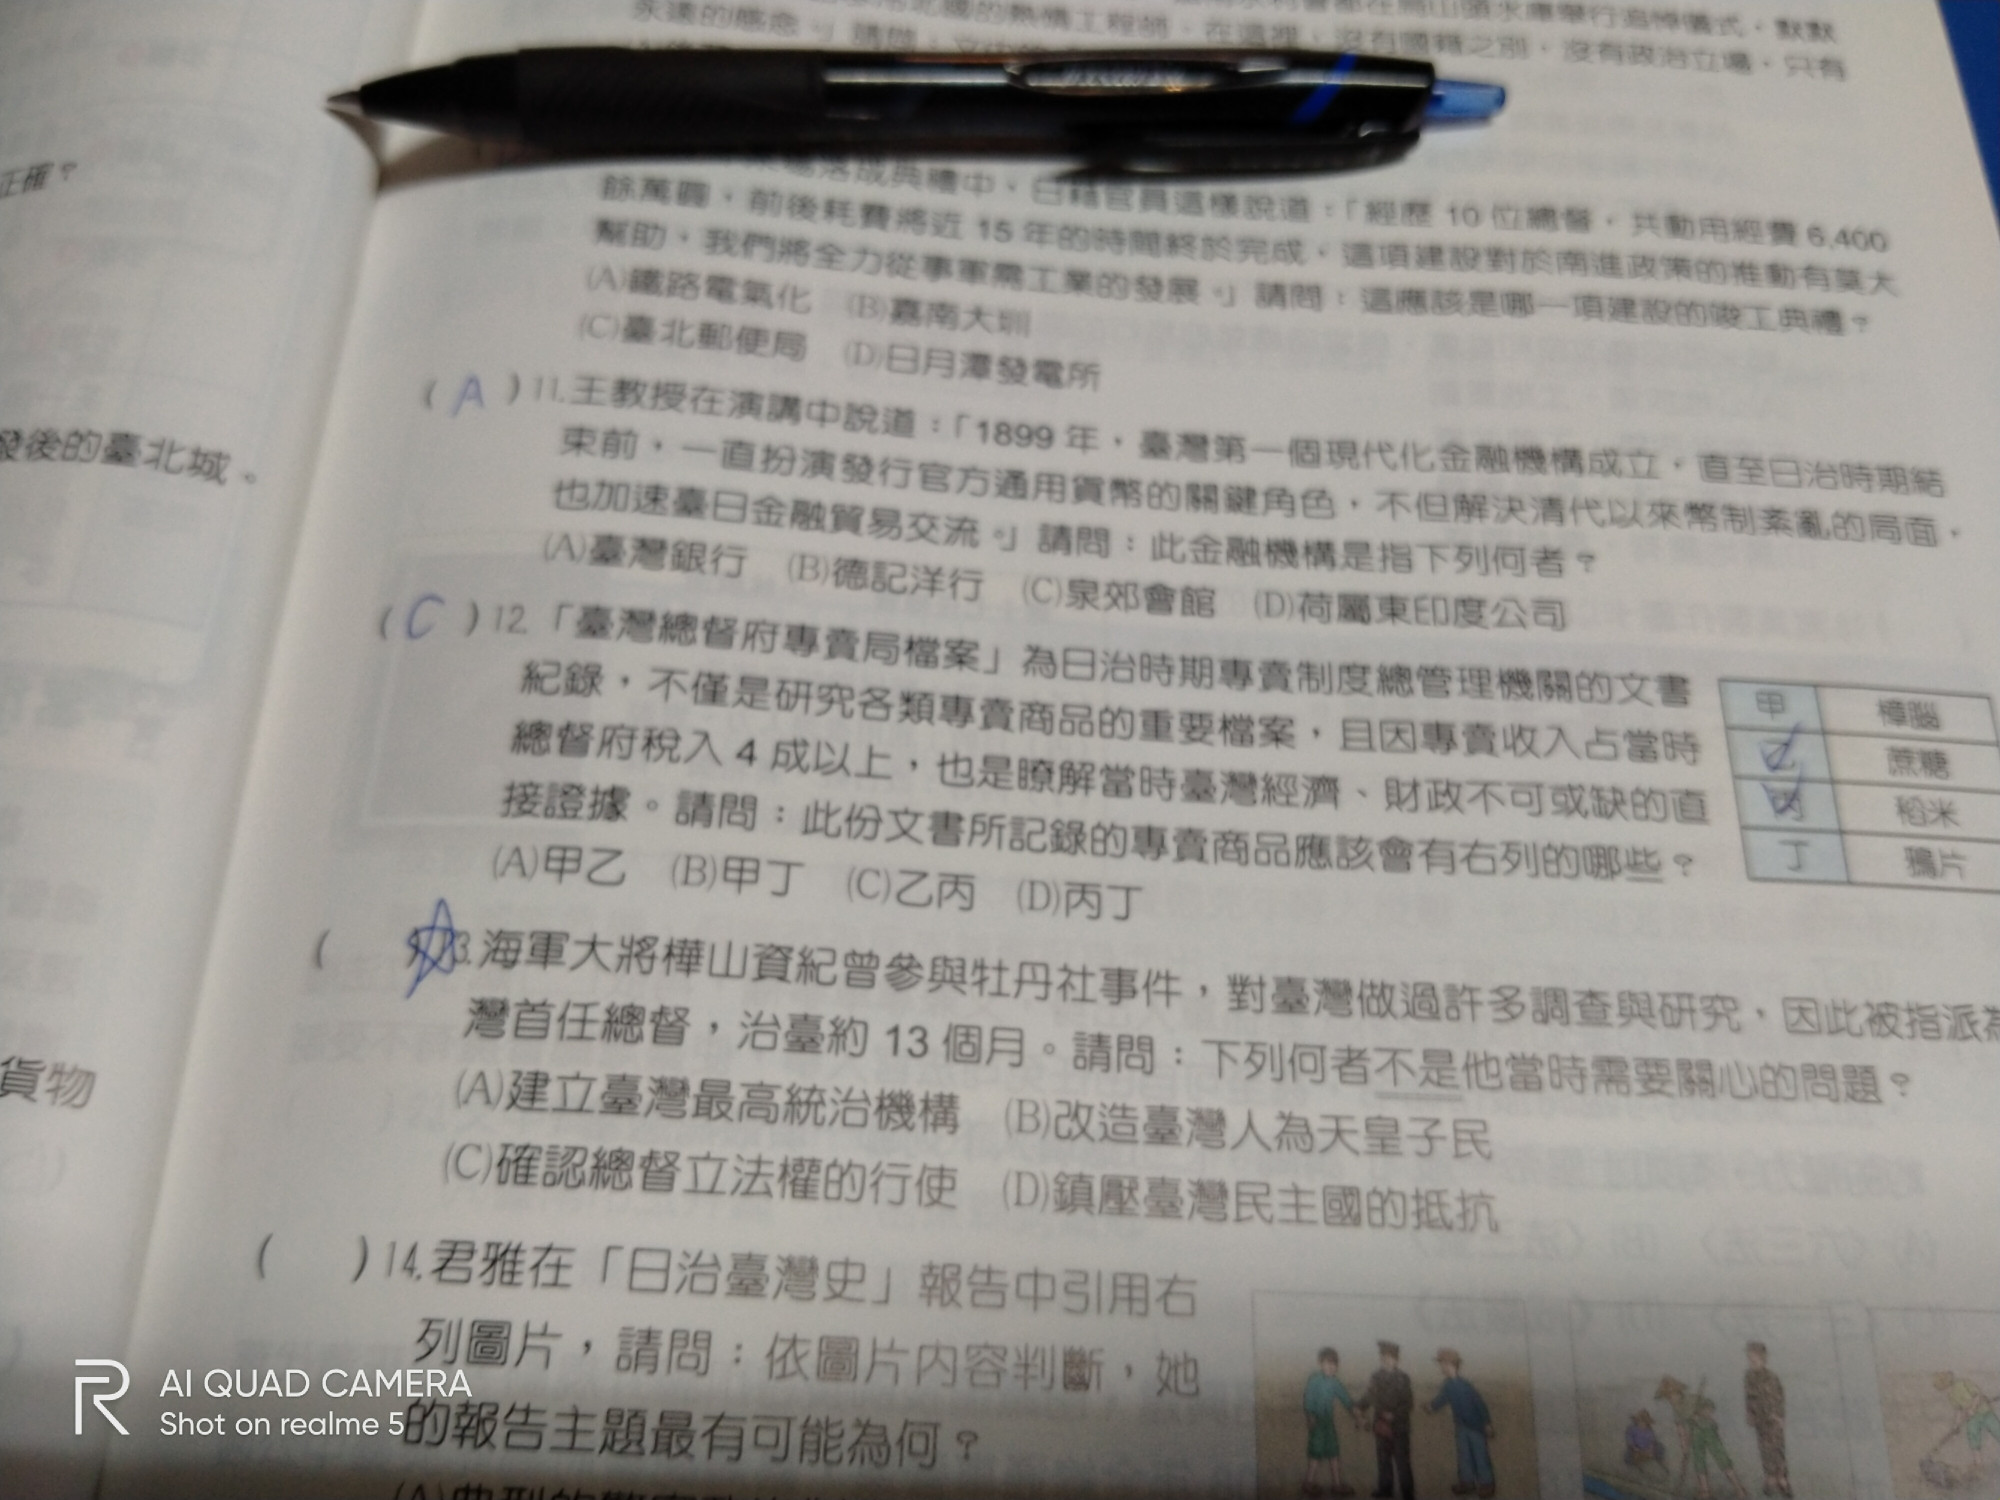 永遠的感念。」請問:
沒有國籍之別,沒有政治立場,只有
落成典禮中,日籍官員這樣說道:「經歷 10 位總督,共動用經費 6,400
餘萬圓,前後耗費將近 15 年的時間終於完成,這項建設對於南進政策的推動有莫大
幫助,我們將全力從事軍需工業的發展。」請問:這應該是哪一項建設的竣工典禮?
(A)鐵路電氣化 (B)嘉南大圳
(C)臺北郵便局 (D)日月潭發電所
( A )11.王教授在演講中說道:「1899 年,臺灣第一個現代化金融機構成立,直至日治時期結
束前,一直扮演發行官方通用貨幣的關鍵角色,不但解決清代以來幣制紊亂的局面,
也加速臺日金融貿易交流。」請問:此金融機構是指下列何者?
(A)臺灣銀行 (B)德記洋行 (C)泉郊會館 (D)荷屬東印度公司
( C )12.「臺灣總督府專賣局檔案」為日治時期專賣制度總管理機關的文書
紀錄,不僅是研究各類專賣商品的重要檔案,且因專賣收入占當時
總督府稅入 4 成以上,也是瞭解當時臺灣經濟、財政不可或缺的直
接證據。請問:此份文書所記錄的專賣商品應該會有右列的哪些?
(A)甲乙 (B)甲丁 (C)乙丙 (D)丙丁
甲 樟腦
乙 蔗糖
丙 稻米
丁 鴉片
( )13.海軍大將樺山資紀曾參與牡丹社事件,對臺灣做過許多調查與研究,因此被指派為
灣首任總督,治臺約 13 個月。請問:下列何者不是他當時需要關心的問題?
(A)建立臺灣最高統治機構 (B)改造臺灣人為天皇子民
(C)確認總督立法權的行使 (D)鎮壓臺灣民主國的抵抗
( )14.君雅在「日治臺灣史」報告中引用右
列圖片,請問:依圖片內容判斷,她
的報告主題最有可能為何?
正確?
發後的臺北城。
貨物
R
AI QUAD CAMERA
Shot on realme 5